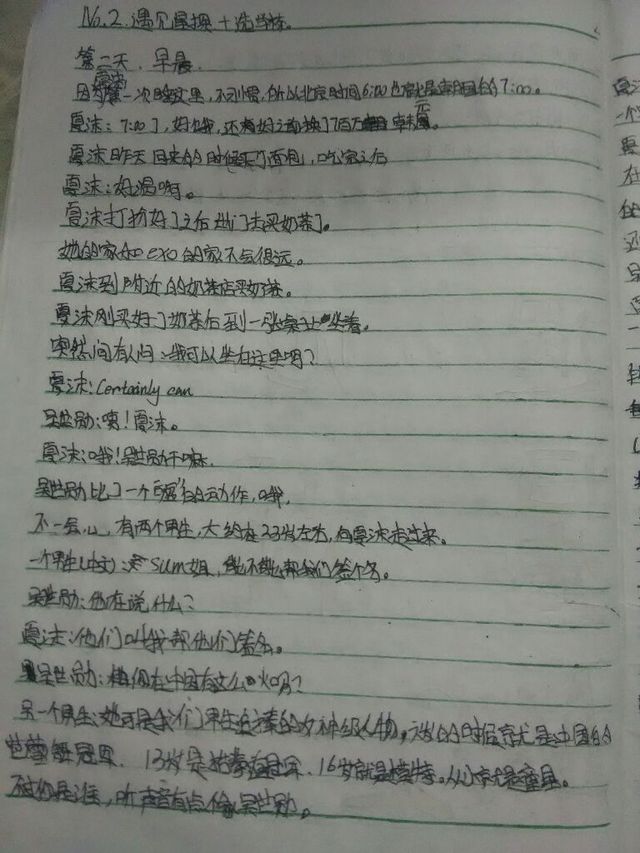 No.2. 遇见吴世勋+当模特.
第二天. 早晨.
因为夏沫第一次睡这里, 不习惯, 所以北京时间6:00也就是韩国的7:00。
夏沫: 7:00了, 好饿, 还有好之前换了7百万韩元。
夏沫昨天回来的时候买了面包, 吃完之后
夏沫: 好渴啊。
夏沫打扮好了之后出门去买奶茶了。
她的家和exo的家不会很远。
夏沫到附近的奶茶店买奶茶。
夏沫刚买好了奶茶后到一张桌上坐着。
突然间有人问: 我可以坐在这里吗?
夏沫: Certainly can
吴世勋: 噢! 夏沫。
夏沫: 哦! 吴世勋干嘛.
吴世勋比了一个嘘的动作, 哦,
不一会儿, 有两个男生, 大约在23岁左右, 向夏沫走过来。
一个男生(中文): Sum姐, 能不能帮我们签个名。
吴世勋: 他在说什么?
夏沫: 他们叫我帮他们签名。
吴世勋: 你在中国有这么火吗?
另一个男生: 她可是我们男生心中的女神级人物, 岁的时候就是中国的
芭蕾舞冠军, 13岁是冠军, 16岁就是模特。从小就是童星。
不知你是谁, 听声音有点像吴世勋。